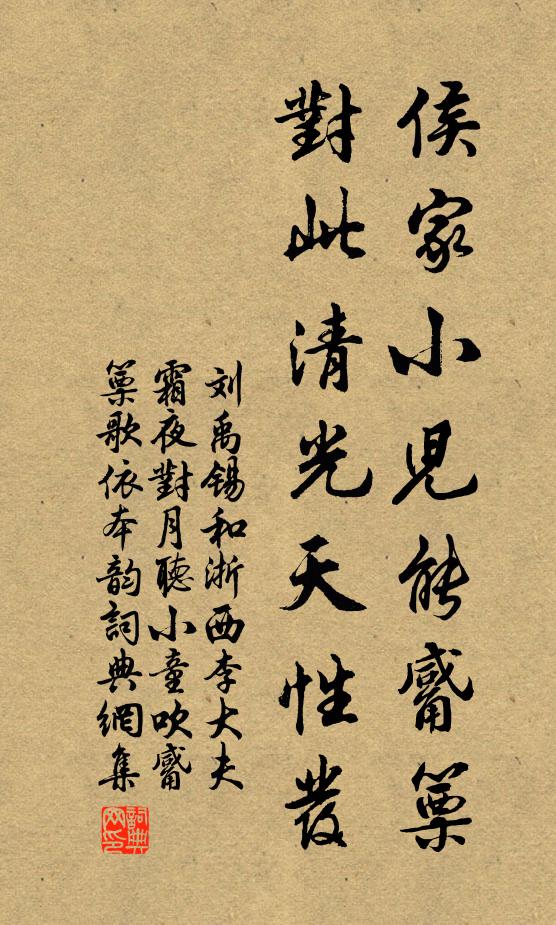 侯家小兒能觱篥
對此清光天性發
刘禹錫和浙西李大夫
霜夜對月聽小童吹觱
篥歌依本韵詞典網集
詞典
网印